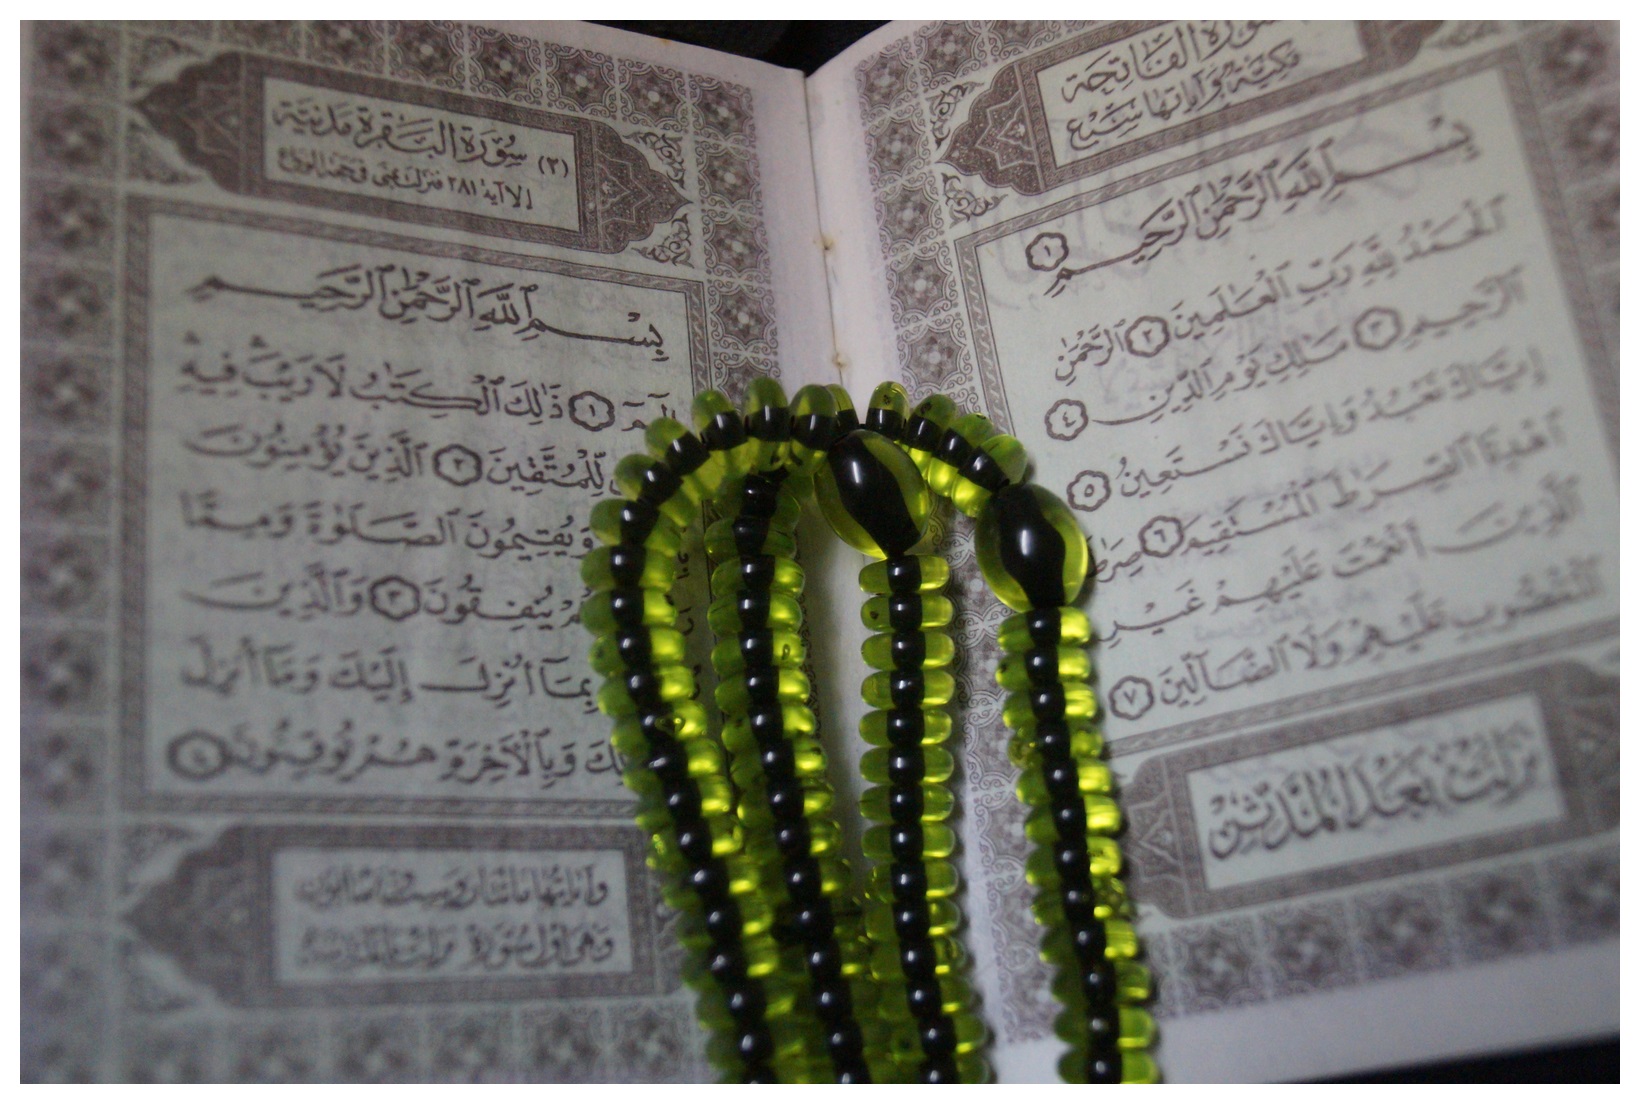 سُورَةُ الفَاتِحَة
مَكِّيَّة وَآيَاتُهَا سَبْع
بِسْمِ ٱللَّهِ ٱلرَّحْمَٰنِ ٱلرَّحِيمِ ١
ٱلْحَمْدُ لِلَّهِ رَبِّ ٱلْعَٰلَمِينَ ٢ ٱلرَّحْمَٰنِ
ٱلرَّحِيمِ ٣ مَٰلِكِ يَوْمِ ٱلدِّينِ ٤
إِيَّاكَ نَعْبُدُ وَإِيَّاكَ نَسْتَعِينُ ٥
ٱهْدِنَا ٱلصِّرَٰطَ ٱلْمُسْتَقِيمَ ٦ صِرَٰطَ
ٱلَّذِينَ أَنْعَمْتَ عَلَيْهِمْ غَيْرِ
ٱلْمَغْضُوبِ عَلَيْهِمْ وَلَا ٱلضَّآلِّينَ ٧
نزلت بَعْدَ المدَّثِّر
(٢) سُورَة البَقَرَة مَدَنيَّة
إلا آية ٢٨١ فنزلت بمنى في حجة الوداع
بِسْمِ ٱللَّهِ ٱلرَّحْمَٰنِ ٱلرَّحِيمِ
الٓمٓ ١ ذَٰلِكَ ٱلْكِتَٰبُ لَا رَيْبَ فِيهِ
لِّلْمُتَّقِينَ ٢ ٱلَّذِينَ يُؤْمِنُونَ
وَيُقِيمُونَ ٱلصَّلَوٰةَ وَمِمَّا
يُنفِقُونَ ٣ وَٱلَّذِينَ
بِمَآ أُنزِلَ إِلَيْكَ وَمَآ أُنزِلَ
وَبِٱلْأَخِرَةِ هُمْ يُوقِنُونَ ٤
وآياتها مائتان وست وثمانون
وهي أول سورة نزلت بالمدينة